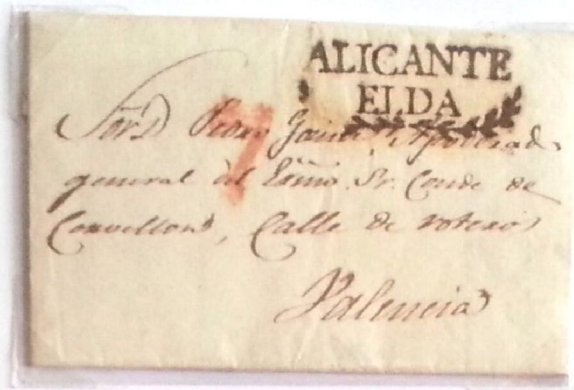 ALICANTE
ELDA
7
Sor D. Pedro Apoderado
general del Exmo Sr. Conde de
Calle de
Valencia